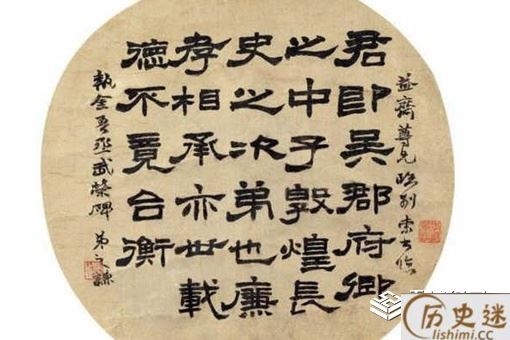 益齋尊兄臨別索書臨
君即吳郡府卿
之中子敦煌長
史之次弟也廉
孝相承亦世載
德不竟台衡
執金吾丞武榮碑 弟之謙
历史迷
lishimi.cc